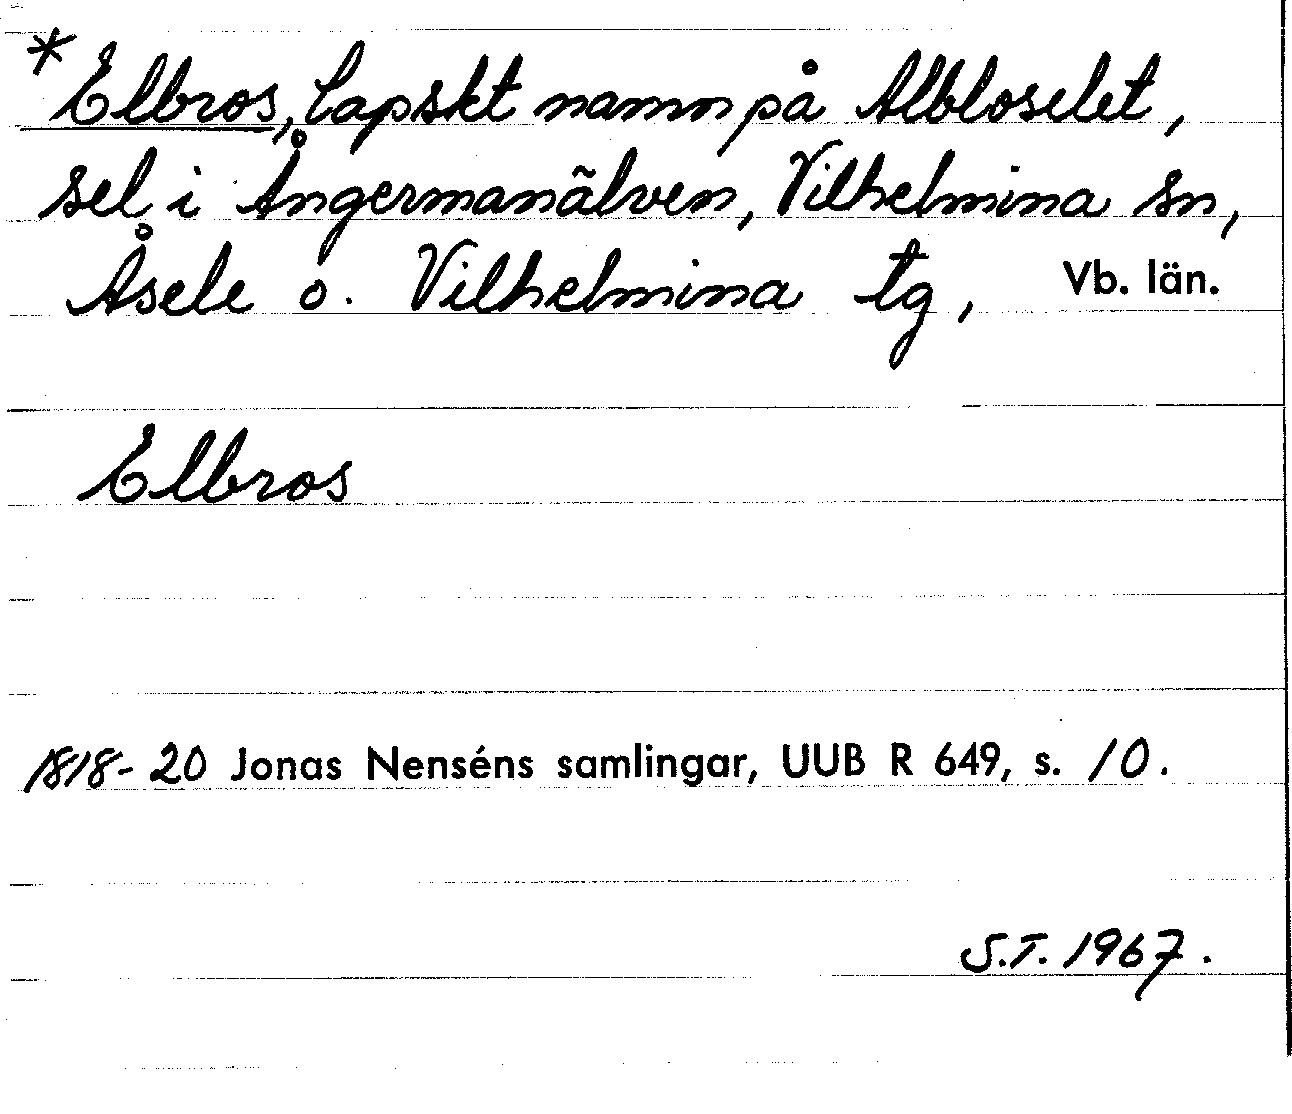 *Elbros, lapskt namn på Albloselet,
sel i Ångermanälven, Vilhelmina sn,
Åsele o. Vilhelmina tg, Vb. län.
Elbros
1818-20 Jonas Nenséns samlingar, UUB R 649, s. 10.
S.T. 1967.